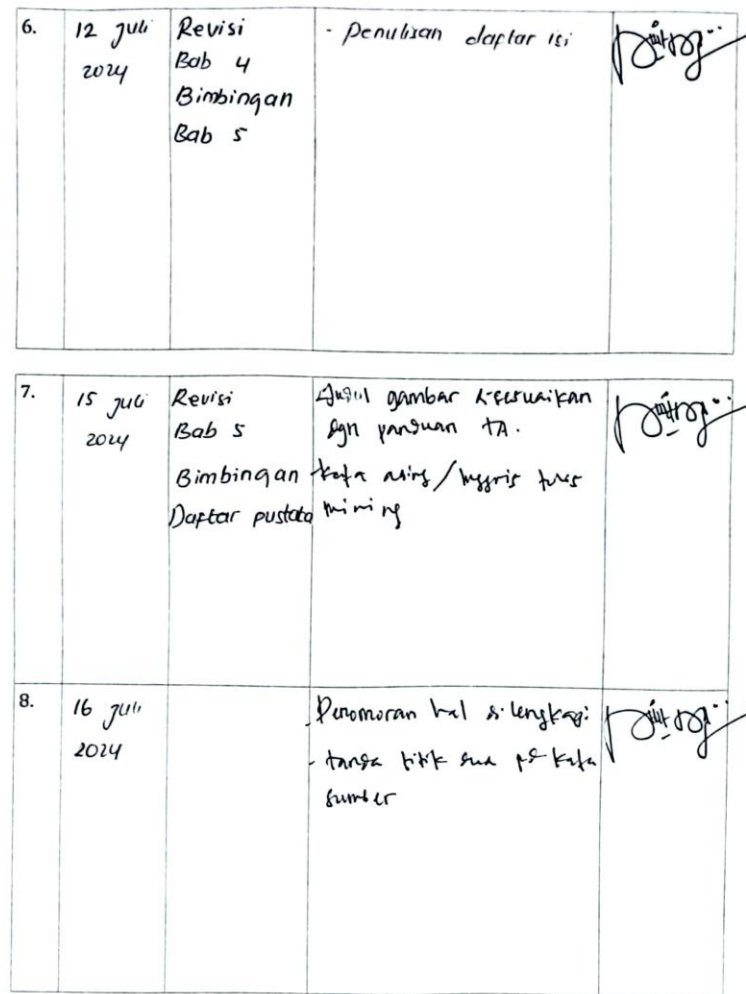 6.
12 Juli
2024
Revisi
Bab 4
Bimbingan
Bab 5
- Penulisan daftar isi
7.
15 Juli
2024
Revisi
Bab 5
Bimbingan
Daftar pustaka
- Judul gambar disesuaikan
dgn panduan TA.
- kata asing/Inggris tulis
miring
8.
16 Juli
2024
- Penomoran hal dilengkapi
- tanda titik dua pd kata
sumber